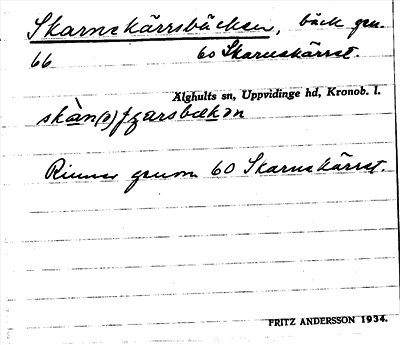 Skarnekärrsbäcken, bäck gm.
66 60 Skarnekärret.
Älghults sn, Uppvidinge hd, Kronob. l.
skàn(ə)ʃæarsbækən
Rinner genom 60 Skarnekärret.
FRITZ ANDERSSON 1934.